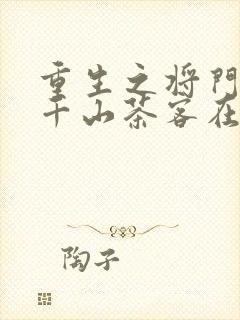 重生之将門
千山茶客在
陶子